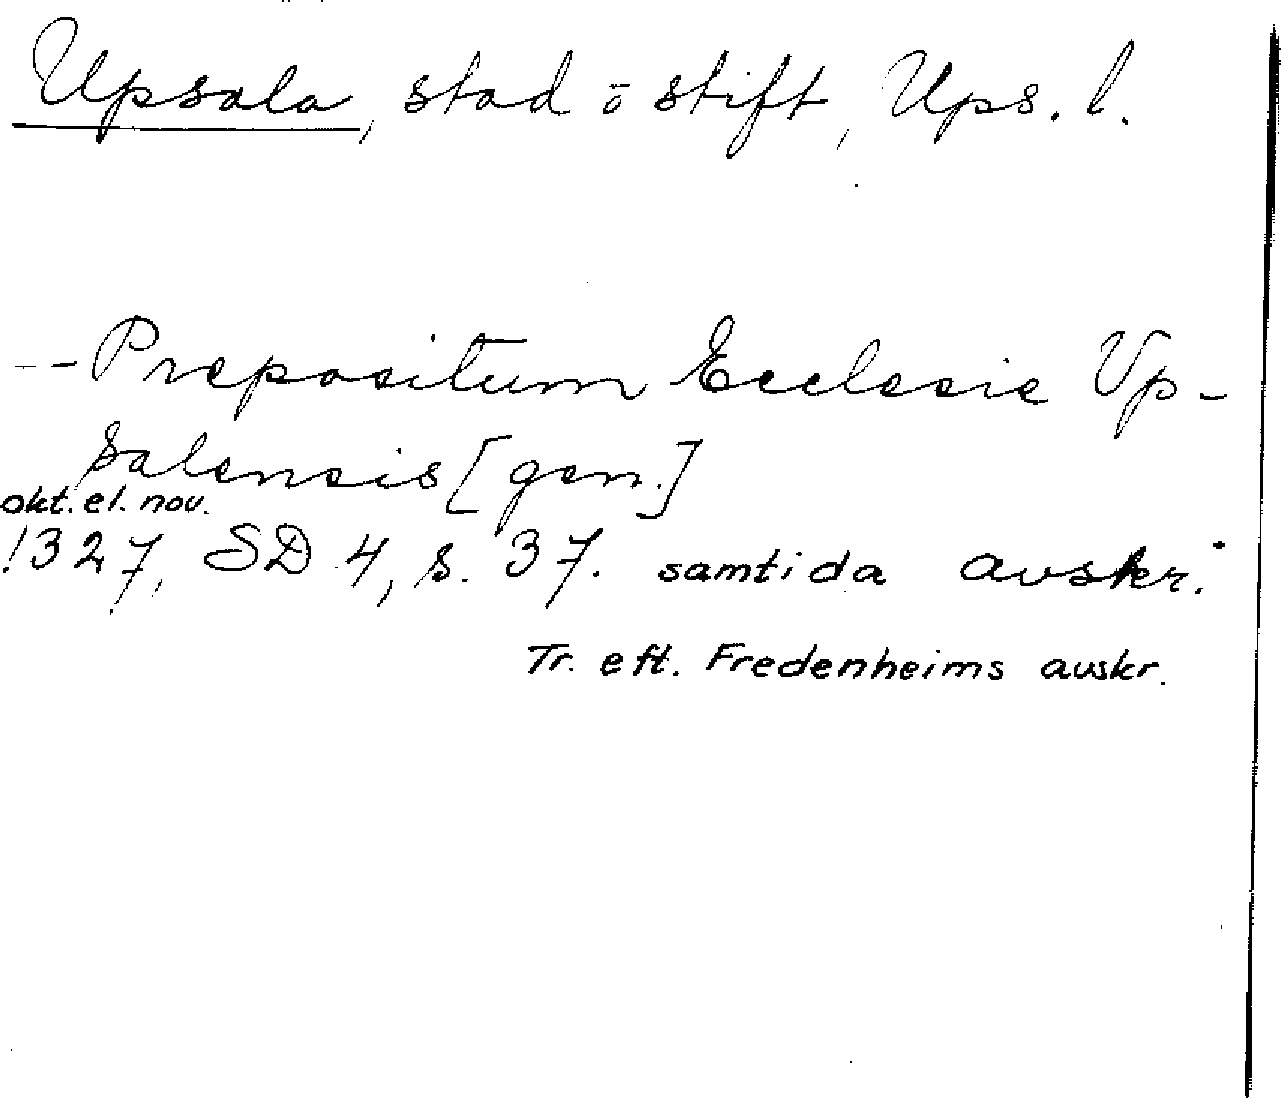 Upsala, stad o stift, Ups. l.
-- Prepositum Ecclesie Vp-
salensis [gen.]
okt. el. nov.
1327, SD 4, s. 37. samtida avskr.
Tr. eft. Fredenheims avskr.